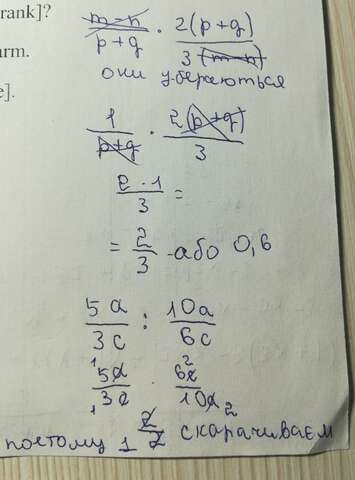 rank]?
m-n/p+g · 2(p+g)/3(m-n)
urm.
они убераються
e].
1/p+g · 2(p+g)/3
2·1/3 =
= 2/3 або 0,6
5a/3c : 10a/6c
1 5a/1 3c · 6c 2/10a 2
поэтому 1 2/2 скарачиваем